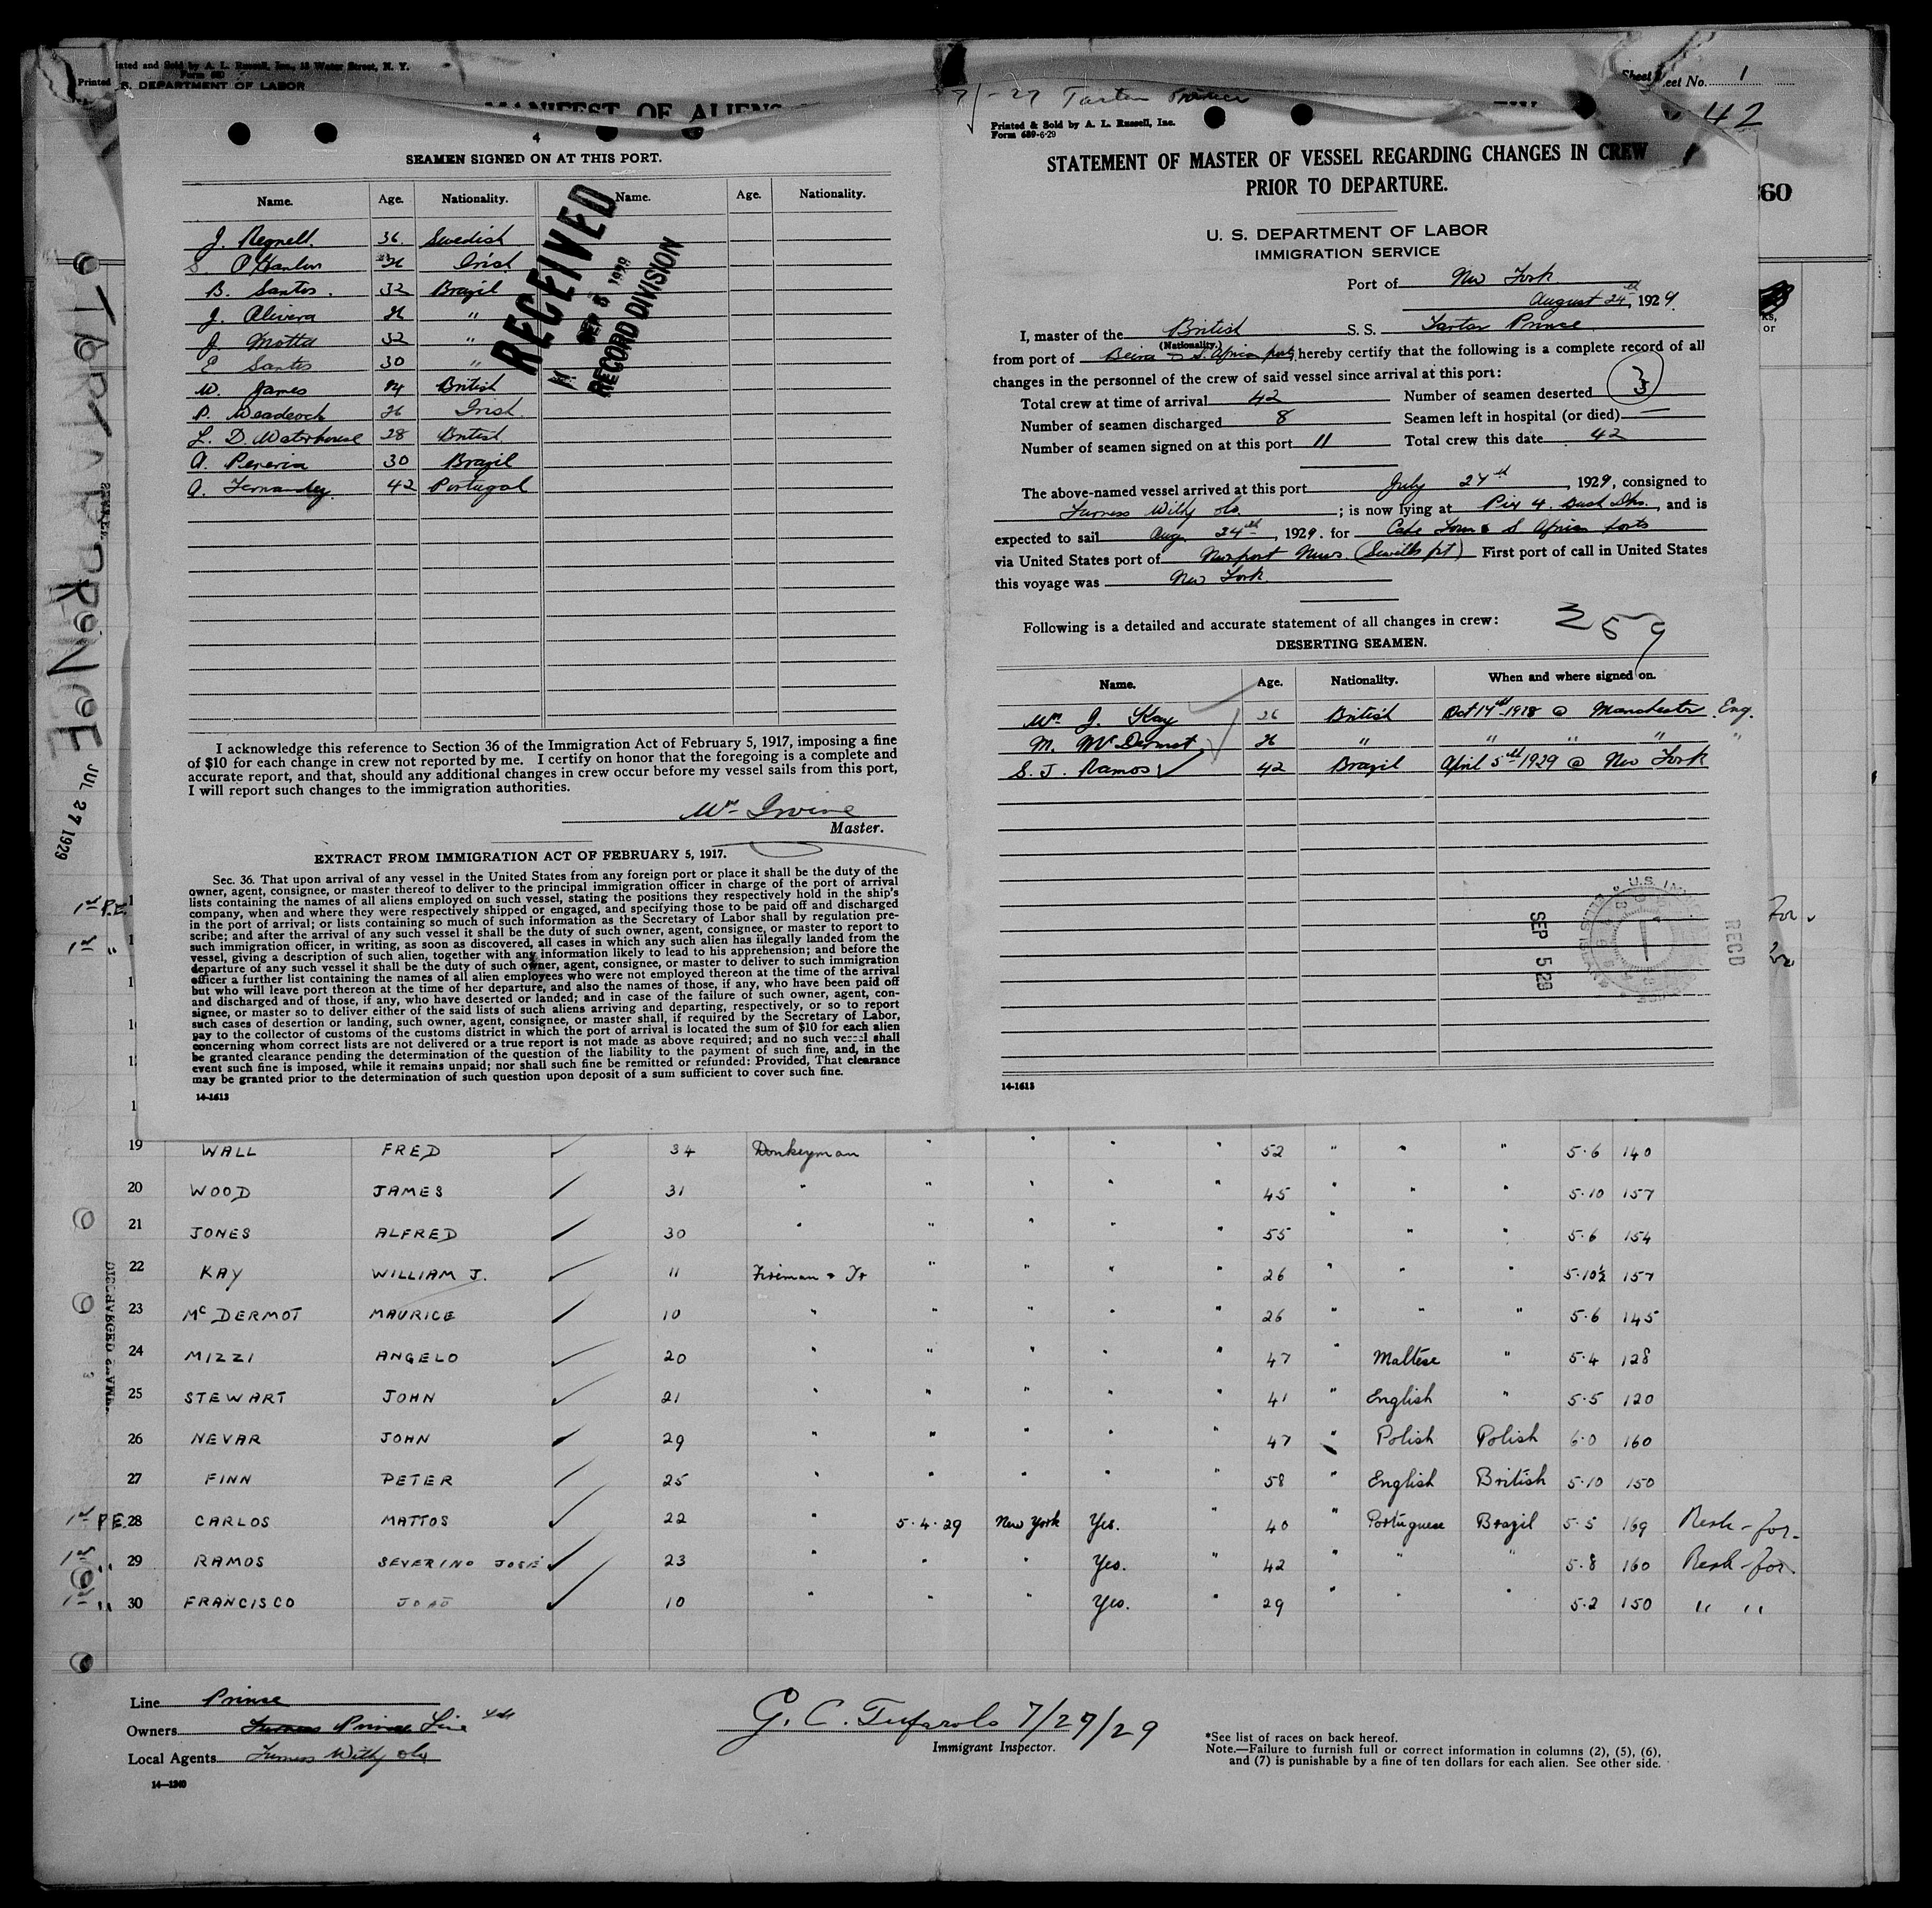 Printed and Sold by A. L. Russell, Inc., 18 Water Street, N. Y.
S. DEPARTMENT OF LABOR
MANIFEST OF ALIENS
Sheet No. 1
42
360
TARTAR PRINCE
JUL 27 1929
4
SEAMEN SIGNED ON AT THIS PORT.
Name. Age. Nationality. Name. Age. Nationality.
J. Regnell. 36. Swedish
S O'Hanlon 26 Irish
B. Santos. 32 Brazil
J. Olivera 26 "
J. Motta 32 "
E Santos 30 "
W. James 24 British
P. Weadcock 26 Irish
L. D. Waterhouse 28 British
A. Pereria 30 Brazil
A. Fernandez 42 Portugal
RECEIVED
SEP 6 1929
RECORD DIVISION
I acknowledge this reference to Section 36 of the Immigration Act of February 5, 1917, imposing a fine
of $10 for each change in crew not reported by me. I certify on honor that the foregoing is a complete and
accurate report, and that, should any additional changes in crew occur before my vessel sails from this port,
I will report such changes to the immigration authorities.
Wm Irvine
Master.
EXTRACT FROM IMMIGRATION ACT OF FEBRUARY 5, 1917.
Sec. 36. That upon arrival of any vessel in the United States from any foreign port or place it shall be the duty of the
owner, agent, consignee, or master thereof to deliver to the principal immigration officer in charge of the port of arrival
lists containing the names of all aliens employed on such vessel, stating the positions they respectively hold in the ship's
company, when and where they were respectively shipped or engaged, and specifying those to be paid off and discharged
in the port of arrival; or lists containing so much of such information as the Secretary of Labor shall by regulation pre-
scribe; and after the arrival of any such vessel it shall be the duty of such owner, agent, consignee, or master to report to
such immigration officer, in writing, as soon as discovered, all cases in which any such alien has illegally landed from the
vessel, giving a description of such alien, together with any information likely to lead to his apprehension; and before the
departure of any such vessel it shall be the duty of such owner, agent, consignee, or master to deliver to such immigration
officer a further list containing the names of all alien employees who were not employed thereon at the time of the arrival
but who will leave port thereon at the time of her departure, and also the names of those, if any, who have been paid off
and discharged and of those, if any, who have deserted or landed; and in case of the failure of such owner, agent, con-
signee, or master so to deliver either of the said lists of such aliens arriving and departing, respectively, or so to report
such cases of desertion or landing, such owner, agent, consignee, or master shall, if required by the Secretary of Labor,
pay to the collector of customs of the customs district in which the port of arrival is located the sum of $10 for each alien
concerning whom correct lists are not delivered or a true report is not made as above required; and no such vessel shall
be granted clearance pending the determination of the question of the liability to the payment of such fine, and, in the
event such fine is imposed, while it remains unpaid; nor shall such fine be remitted or refunded: Provided, That clearance
may be granted prior to the determination of such question upon deposit of a sum sufficient to cover such fine.
14-1613
7/-27 Tartar Prince
Printed & Sold by A. L. Russell, Inc.
Form 689-6-29
STATEMENT OF MASTER OF VESSEL REGARDING CHANGES IN CREW
PRIOR TO DEPARTURE.
U. S. DEPARTMENT OF LABOR
IMMIGRATION SERVICE
Port of New York
August 24th, 1929.
I, master of the British S. S. Tartar Prince
(Nationality.)
from port of Beira & S. Africa ports, hereby certify that the following is a complete record of all
changes in the personnel of the crew of said vessel since arrival at this port:
Total crew at time of arrival 42 Number of seamen deserted 3
Number of seamen discharged 8 Seamen left in hospital (or died) —
Number of seamen signed on at this port 11 Total crew this date 42
The above-named vessel arrived at this port July 27th, 1929, consigned to
Furness Withy Co; is now lying at Pier 4. Bush Dks., and is
expected to sail Aug 24th, 1929. for Cape Town & S African ports
via United States port of Newport News (Sewills pt) First port of call in United States
this voyage was New York
Following is a detailed and accurate statement of all changes in crew:
359
DESERTING SEAMEN.
Name. Age. Nationality. When and where signed on.
Wm J. Kay 26 British Oct 17th 1928 @ Manchester Eng.
M. McDermot 26 " " " " "
S. J. Ramos 42 Brazil April 5th 1929 @ New York
SEP 5 29
RECD
14-1613
19 WALL FRED 34 Donkeyman " " " " 52 " " " 5·6 140
20 WOOD JAMES 31 " " " " " 45 " " " 5·10 157
21 JONES ALFRED 30 " " " " " 55 " " " 5·6 154
22 KAY WILLIAM J. 11 Fireman & Tr " " " " 26 " " " 5·10½ 157
23 McDERMOT MAURICE 10 " " " " " 26 " " " 5·6 145
24 MIZZI ANGELO 20 " " " " " 47 " Maltese " 5·4 128
25 STEWART JOHN 21 " " " " " 41 " English " 5·5 120
26 NEVAR JOHN 29 " " " " " 47 " Polish Polish 6·0 160
27 FINN PETER 25 " " " " " 58 " English British 5·10 150
28 CARLOS MATTOS 22 " 5·4·29 New York Yes. " 40 " Portuguese Brazil 5·5 169 Resh-for-
29 RAMOS SEVERINO JOSÉ 23 " " " Yes. " 42 " " " 5·8 160 Resh-for.
30 FRANCISCO JOAO 10 " " " Yes. " 29 " " " 5·2 150 " "
Line Prince
Owners Furness Prince Line Ltd
Local Agents Furness Withy Co
14—1240
G. C. Tufarolo 7/27/29
Immigrant Inspector.
*See list of races on back hereof.
Note.—Failure to furnish full or correct information in columns (2), (5), (6),
and (7) is punishable by a fine of ten dollars for each alien. See other side.